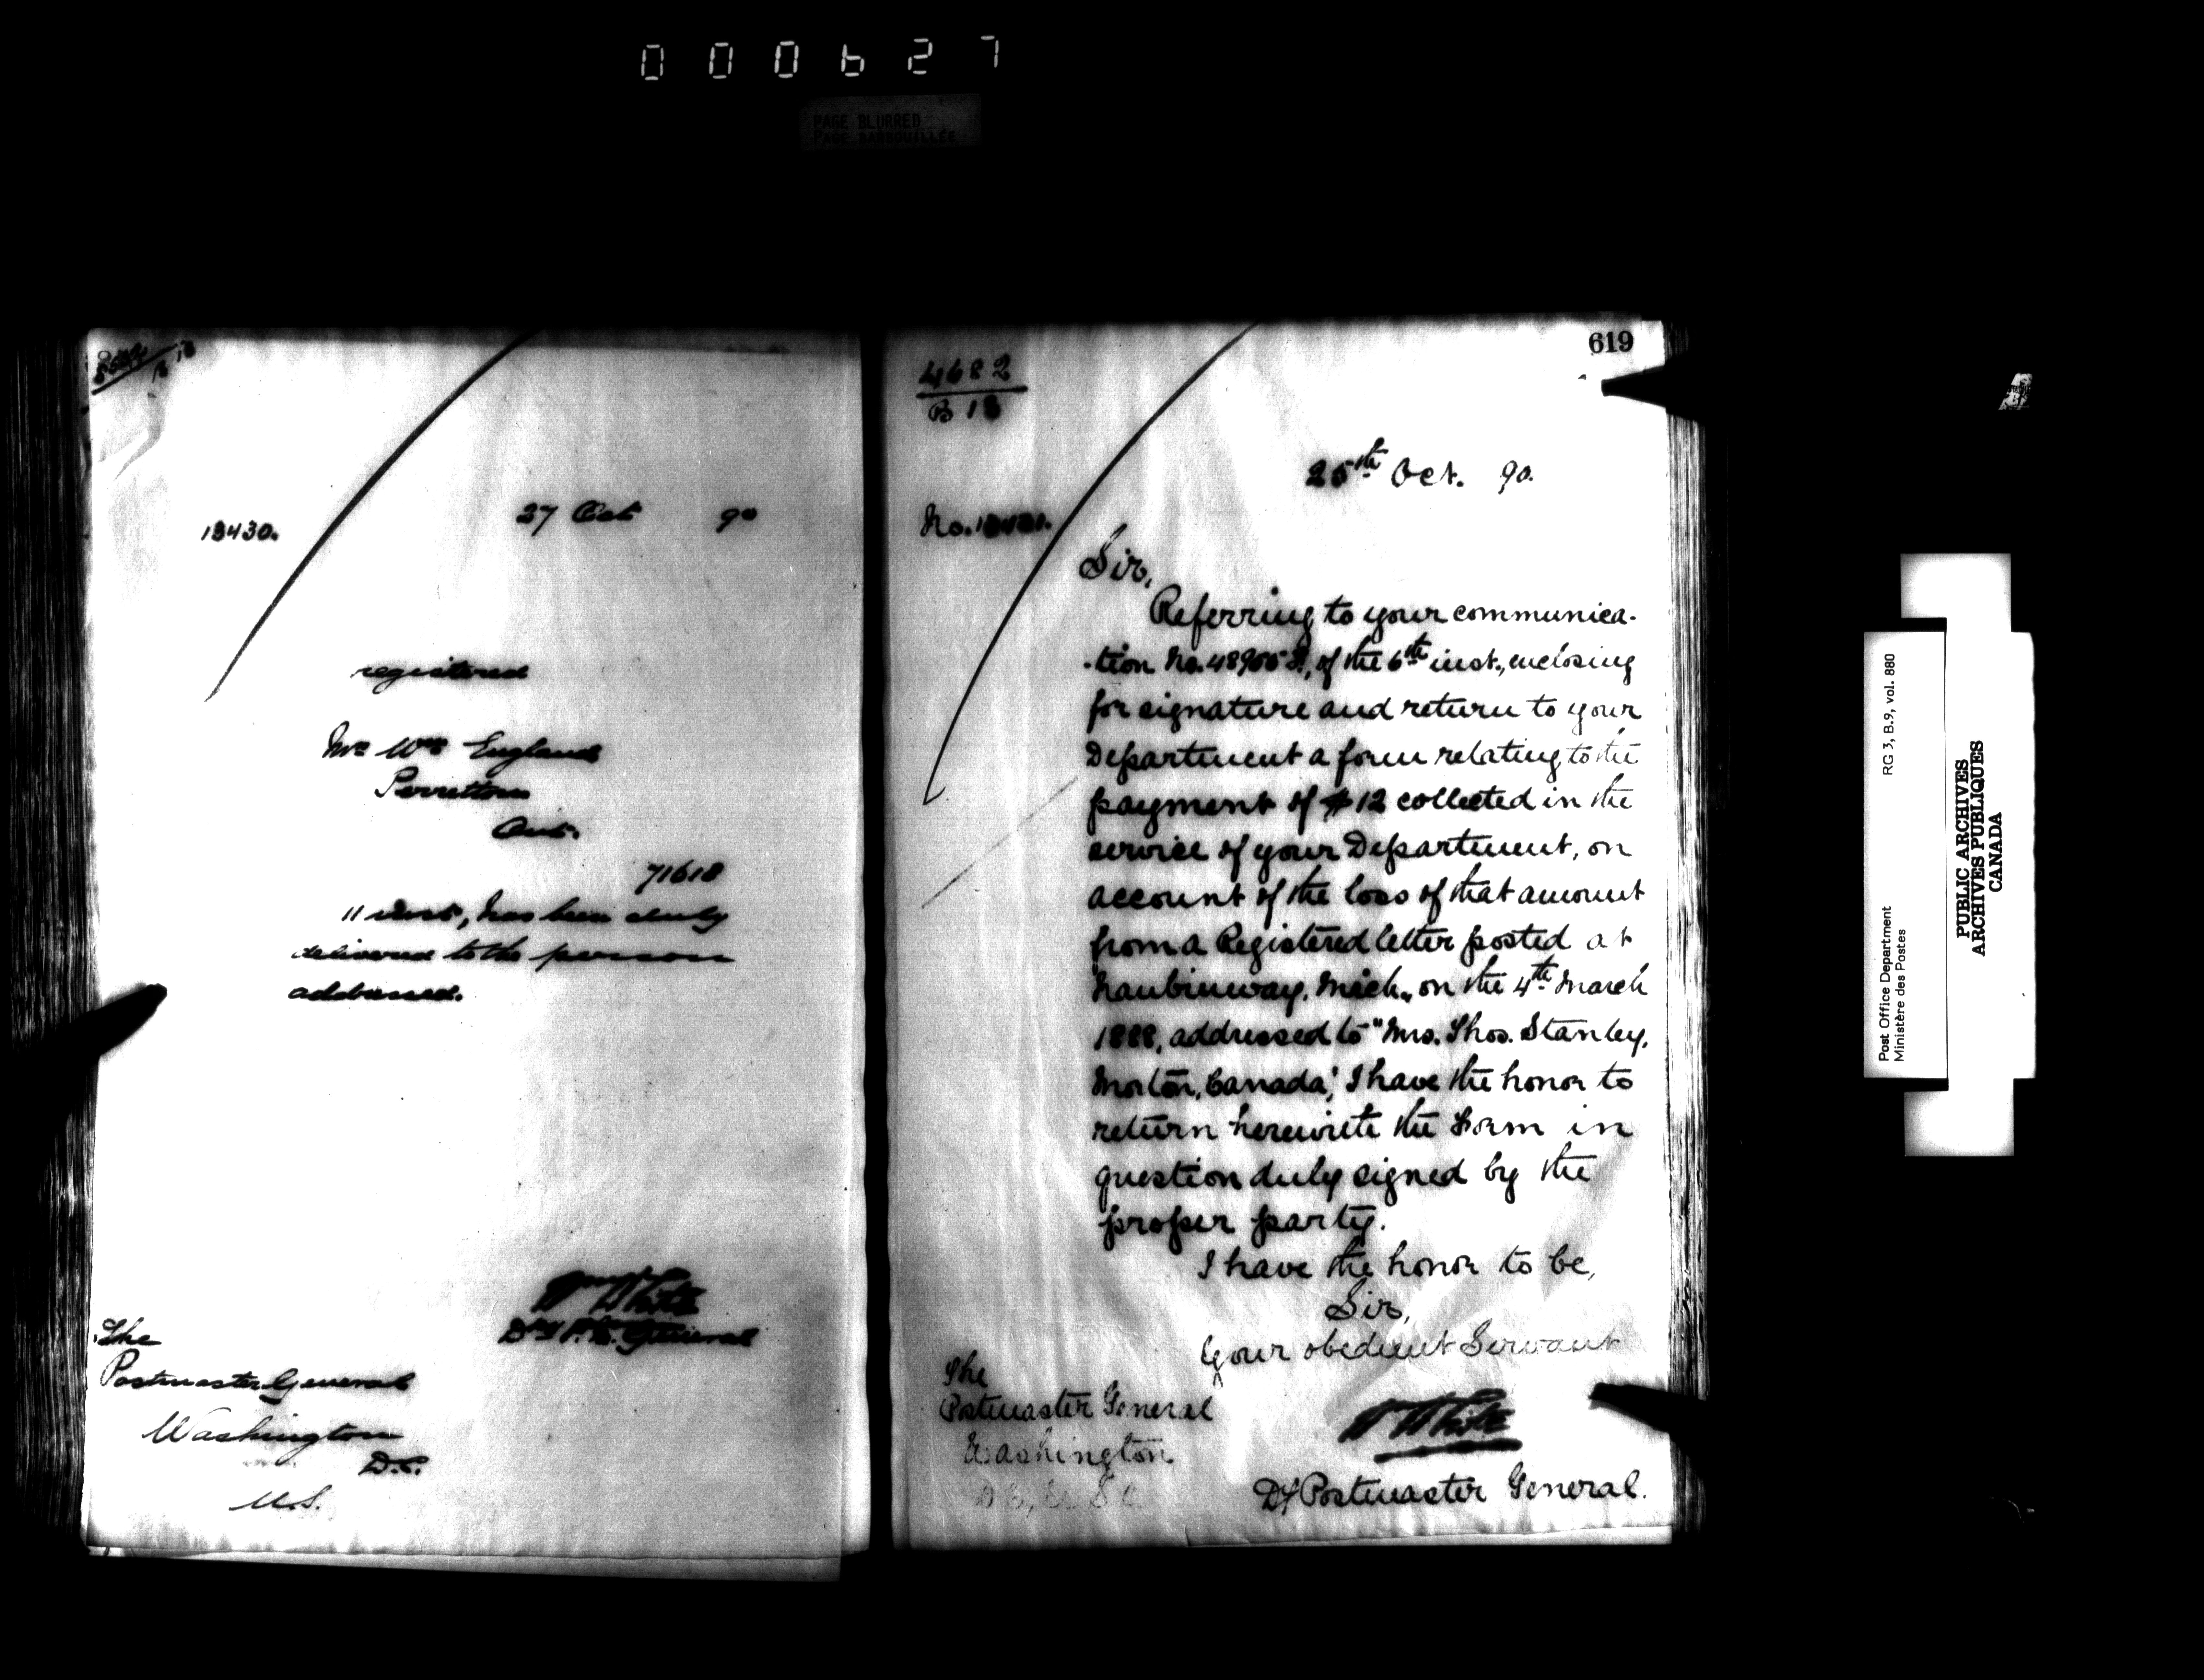 000627
PAGE BLURRED
PAGE BARBOUILLÉE
13430.
27 Oct 90
registered
Mr Wm England
Perretton
Ont.
71618
11 inst, has been duly
delivered to the person
addressed.
W White
Dy P. M. General
The
Postmaster General
Washington
D.C.
U.S.
619
4682
B 13
25th Oct. 90.
No.
Sir,
Referring to your communica-
-tion No. of the 6th inst., enclosing
for signature and return to your
Department a form relating to the
payment of $12 collected in the
service of your Department, on
account of the loss of that amount
from a Registered letter posted at
Naubinway, Mich., on the 4th March
1888, addressed to "Mrs. Thos. Stanley,
Morton, Canada," I have the honor to
return herewith the Form in
question duly signed by the
proper party.
I have the honor to be,
Sir,
Your obedient Servant
W White
Dy Postmaster General.
The
Postmaster General
Washington
D C, U S A
Post Office Department
Ministère des Postes
RG 3, B.9, vol. 880
PUBLIC ARCHIVES
ARCHIVES PUBLIQUES
CANADA